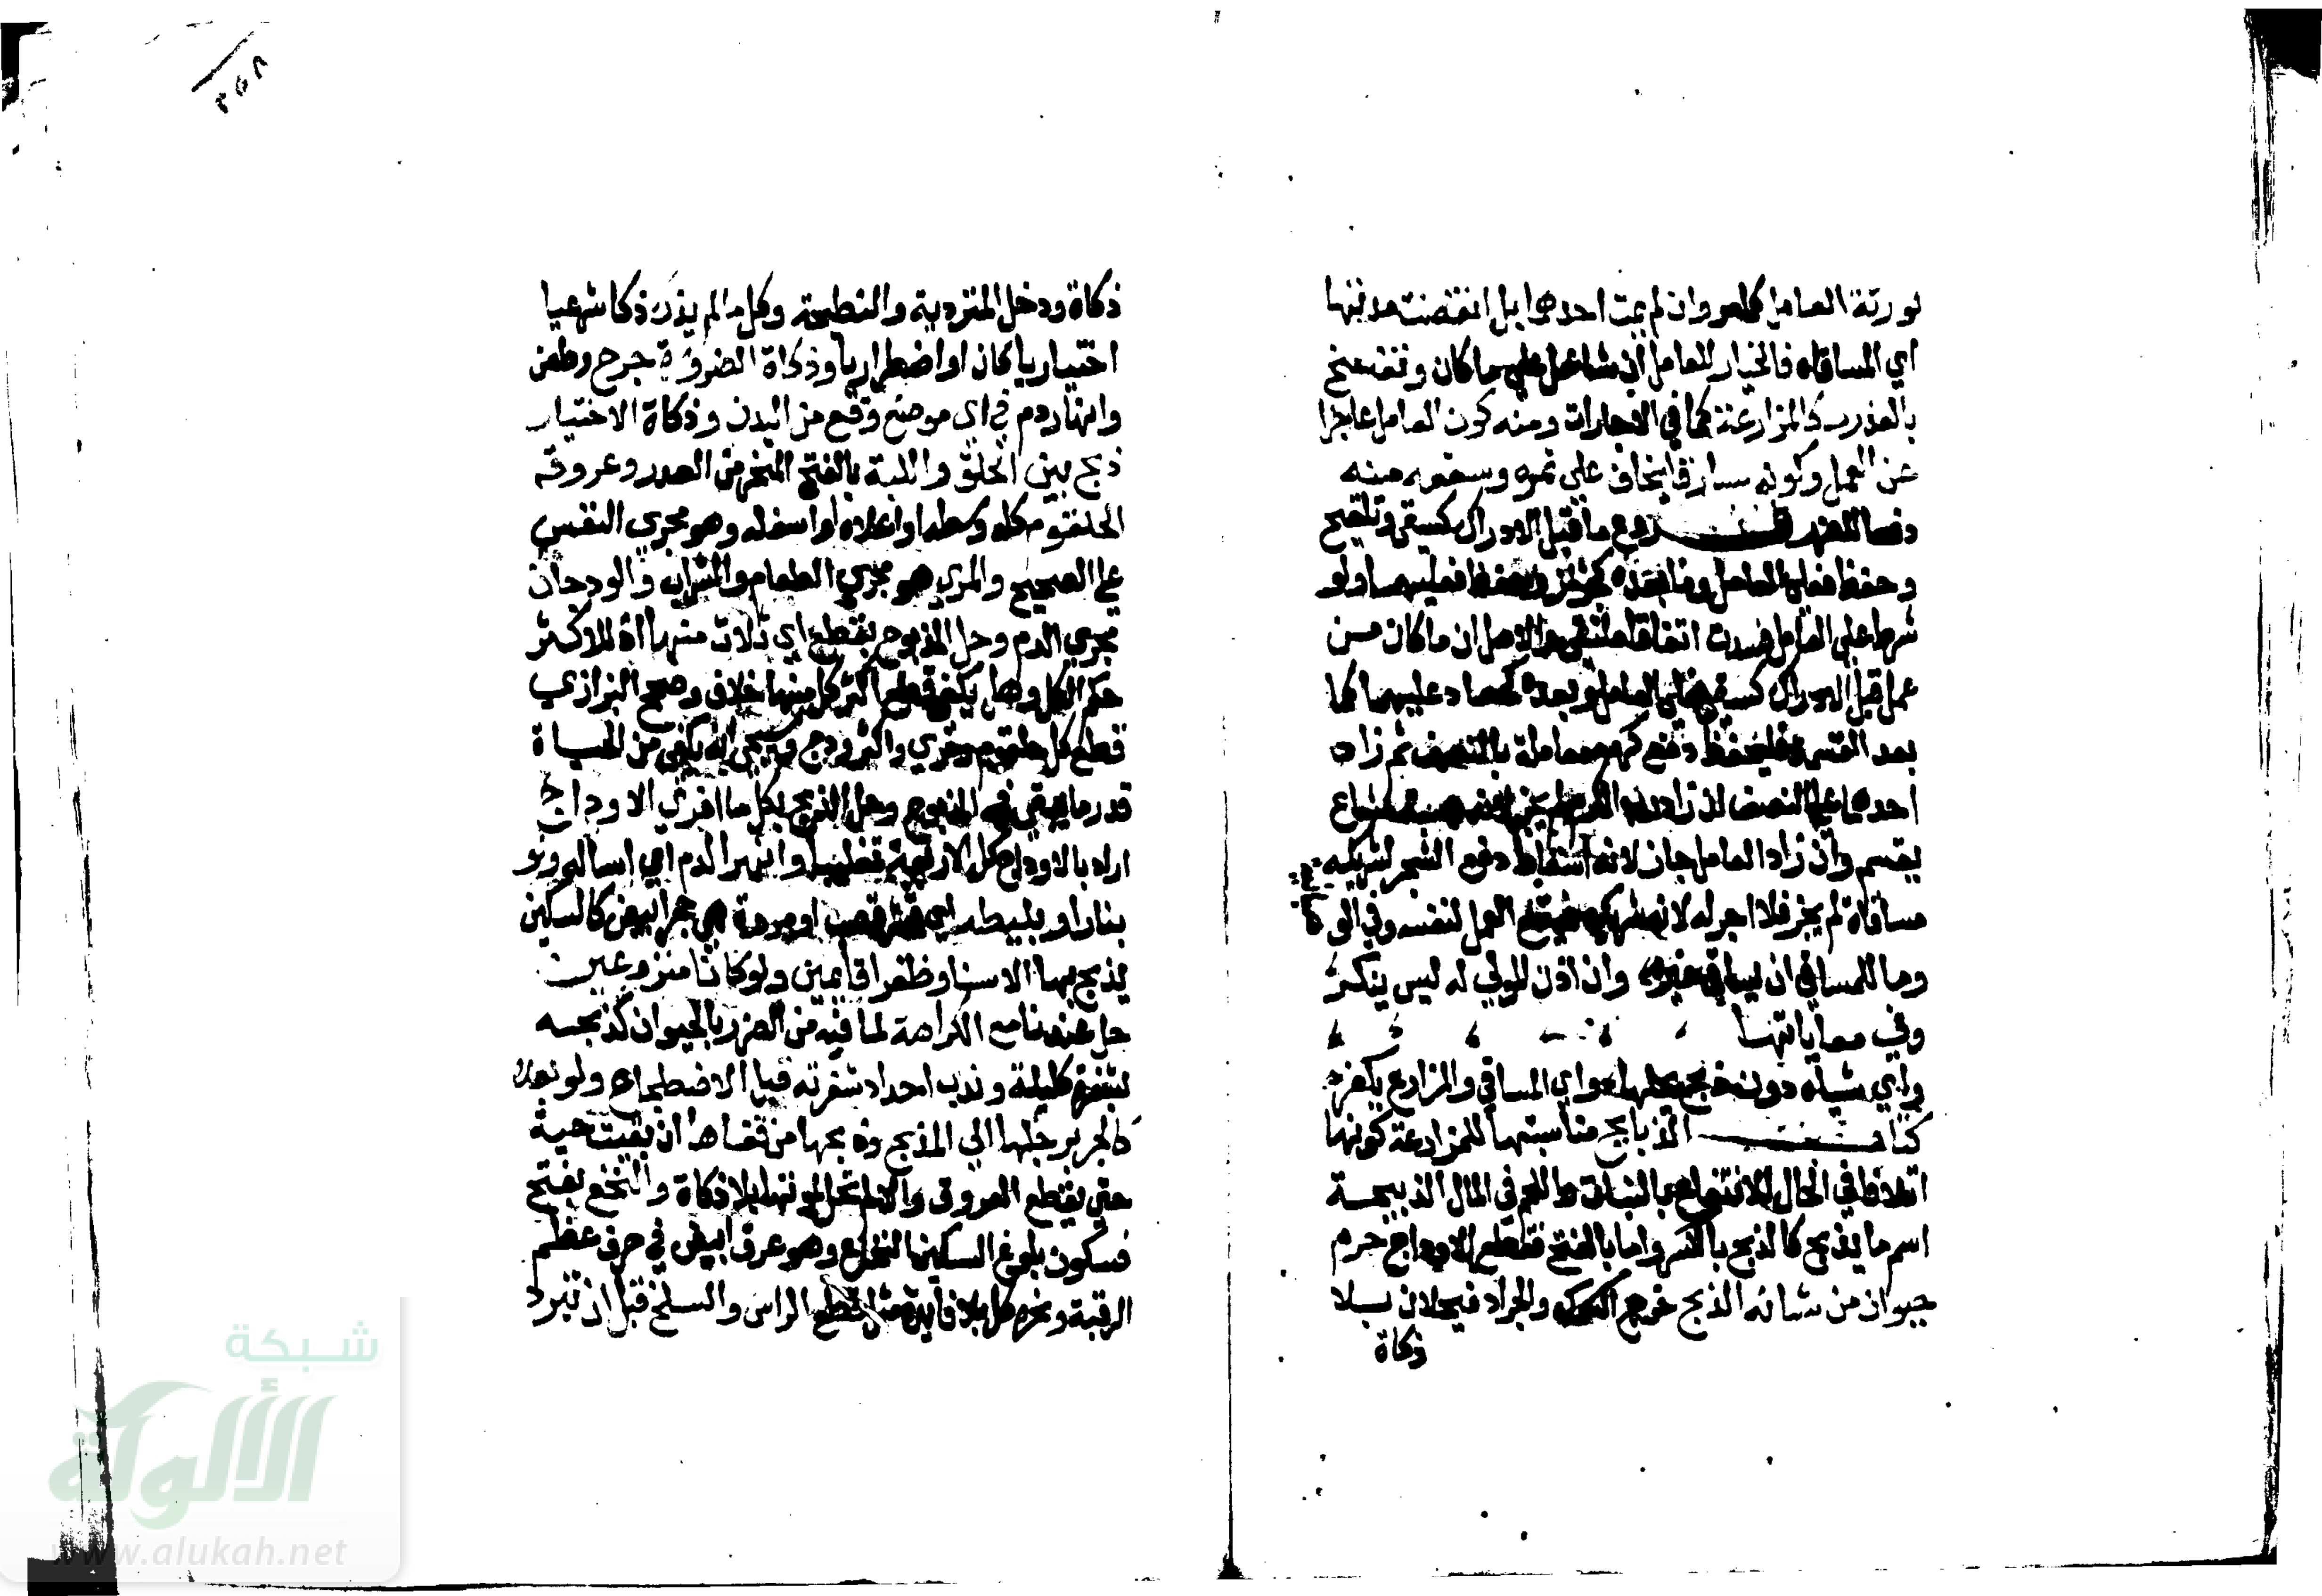 لورثة العامل كما مر وان لم يمت احدهما بل انقضت مدتها
اي المساقاه فالخيار للعامل ان شا عمل على ما كان وتفسخ
بالعذر كالمزارعة كما في الاجارات ومنه كون العامل عاجزا
عن العمل وكونه سارقا يخاف على ثمره وسعفه منه
دفعا للضرر فروع ما قبل الادراك كسقي وتلقيح
وحفظ فعلى العامل وما بعده كجذاذ وحفظ فعليهما ولو
شرط على العامل فسدت اتفاقا ملتقى والاصل ان ما كان من
عمل قبل الادراك كسقي فعلى العامل وبعده كحصاد عليهما كما
بعد القسمة فليحفظ دفع كرمه معاملة بالنصف ثم زاد
احدهما على النصف ان زاد رب الكرم لم يجز لانه هبة مشاع
يقسم وان زاد العامل جاز لانه اسقاط دفع الشجر لشريكه
مساقاة لم يجز فلا اجر له لانه شريك فيقع العمل لنفسه وفي الوهبانية
وما للمساقي ان يساقي غيره وان اذن المولى له ليس ينكر
وفي معاياتها
واي شياه دون ذبح يحلها واي المساقي والمزارع يكفر
كتاب الذبايح مناسبتها للمزارعة كونها
اتلافا في الحال للانتفاع بالنبات واللحم في المال الذبيحة
اسم ما يذبح كالذبح بالكسر واما بالفتح فقطع الاوداج حرم
حيوان من شانه الذبح خرج السمك والجراد فيحلان بلا
ذكاة
٢٥٨
ذكاة ودخل المتردية والنطيحة وكل ما لم يذك ذكا شرعيا
اختياريا كان او اضطراريا وذكاة الضرورة جرح وطعن
وانهار دم في اي موضع وقع من البدن وذكاة الاختيار
ذبح بين الحلق واللبة بالفتح المنحر من الصدر وعروقه
الحلقوم كله وسطه او اعلاه او اسفله وهو مجرى النفس
على الصحيح والمري هو مجرى الطعام والشراب والودجان
مجرى الدم وحل المذبوح بقطع اي ثلاث منها اذ للاكثر
حكم الكل وهل يكفي قطع اكثر كل منها خلاف وصحح البزازي
قطع كل حلقوم ومري واكثر ودج وسيجي انه يكفي من الحياة
قدر ما يبقى في المذبوح وحل الذبح بكل ما افرى الاوداج
اراد بالاوداج كل الاربعة تغليبا وانهر الدم اي اساله ولو
بنار او بليطه اي قشر قصب او مروة هي حجر ابيض كالسكين
يذبح بها الا سنا وظفرا قايمين ولو كانا منزوعين
حل عندنا مع الكراهة لما فيه من الضرر بالحيوان كذبحه
بشفرة كليلة وندب احداد شفرته قبل الاضطجاع ولو بعده
كالجر برجلها الى المذبح وذبحها من قفاها ان بقيت حية
حتى يقطع العروق والا لم تحل لموتها بلا ذكاة والنخع بفتح
فسكون بلوغ السكين النخاع وهو عرق ابيض في جوف عظم
الرقبة وكره كل بلا فايدة مثل قطع الراس والسلخ قبل ان تبرد
شبكة
الألوكة
www.alukah.net